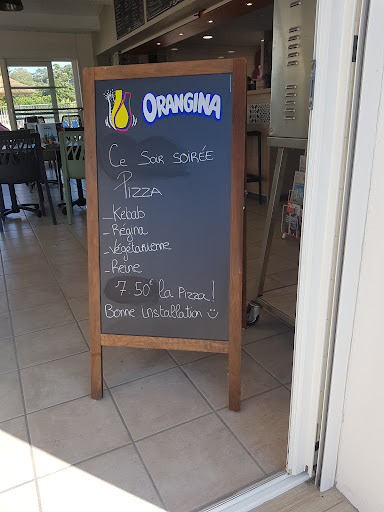 ORANGINA
Ce soir soirée
Pizza
- Kebab
- Régina
- Végétarienne
- Reine
7.50€ la pizza!
Bonne installation